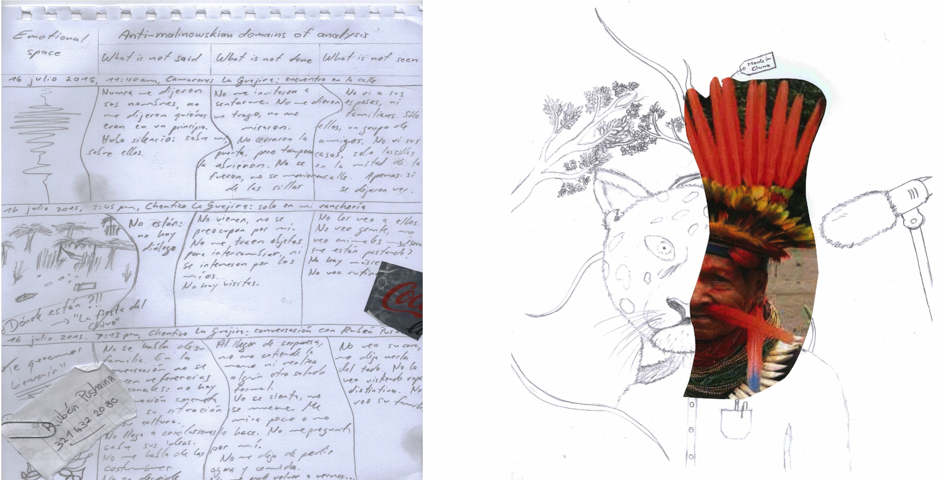 Emotional space
Anti-malinowskian domains of analysis
What is not said
What is not done
What is not seen
16 julio 2015, 11:40am, Camarones La Guajira: encuentro en la calle
Nunca me dijeron
sus nombres, no
me dijeron quiénes
eran en un principio.
Hubo silencio: sobre mí,
sobre ellos.
No me invitaron a
sentarme. No me dieron
un trago, no me
miraron.
No cerraron la
puerta, pero tampoco
la abrieron. No se
fueron, no se movieron
de las sillas
No vi a sus
esposas, ni
familiares. Sólo
ellos, un grupo de
amigos. No vi sus
casas, solo las sillas
en la mitad de la
calle. Apenas si
se dejaron ver.
16 julio 2015, 2:45 pm, Chentico La Guajira: solo en mi ranchería
No están:
no hay
diálogo
¿Dónde están?!!!
→ "La fiesta del
chivo"
No vienen, no se
preocupan por mí.
No me traen objetos
para intercambiar, ni
se interesan por los
míos.
No hay visitas.
No los veo a ellos.
No veo gente, no
veo animales
están pastando?
No hay música
No veo
Coca
16 julio 2015, 7:13 pm, Chentico La Guajira: conversación con Rubén
Te queremos
bienvenir!!
Rubén Pushaina
321 432 2080
No se habla de su
familia. En la
conversación no se
referencias
no hay
situación
cultura.
No llega a conclusiones
sobre sus ideas.
No me habla de las
costumbres
No se despide
Al llegar de sorpresa,
no me extiende la
mano ni realiza
algún otro saludo
formal.
No se sienta, no
se mueve. Me
mira poco y no
lo hace. No me pregunta
por mí.
No me deja de pedir
agua y comida.
No veo su cara,
no me deja verla
del todo. No lo
veo vistiendo ropa
distintiva. No
veo su familia
Made in
China